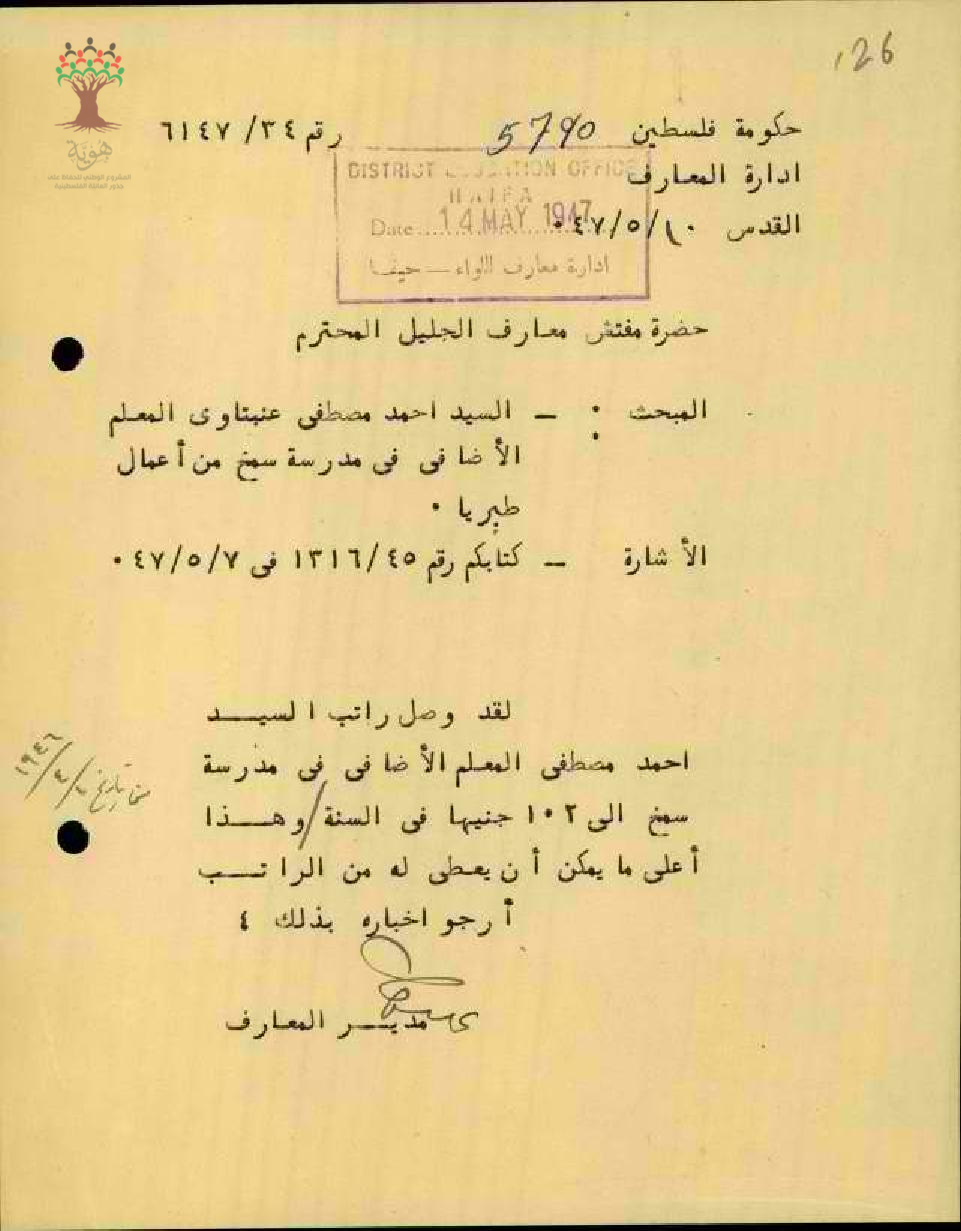 126
هوية
المشروع الوطني للحفاظ على
جذور العائلة الفلسطينية
حكومة فلسطين 5790 رقم ٣٤/ ٦١٤٧
ادارة المعارف
القدس ١٠/٥/٤٧٠
DISTRICT EDUCATION OFFICE
HAIFA
Date 14 MAY 1947
ادارة معارف اللواء — حيفا
حضرة مفتش معارف الجليل المحترم
المبحث : — السيد احمد مصطفى عنبتاوى المعلم
الأضافى فى مدرسة سمخ من أعمال
طبريا ٠
الأشارة — كتابكم رقم ١٣١٦/٤٥ فى ٤٧/٥/٧ ٠
لقد وصل راتب السيد
احمد مصطفى المعلم الأضافى فى مدرسة
سمخ الى ١٠٢ جنيها فى السنة/وهذا
من تاريخ ١/٤/١٩٤٦
أعلى ما يمكن أن يعطى له من الراتب
أرجو اخباره بذلك ٤
مدير المعارف